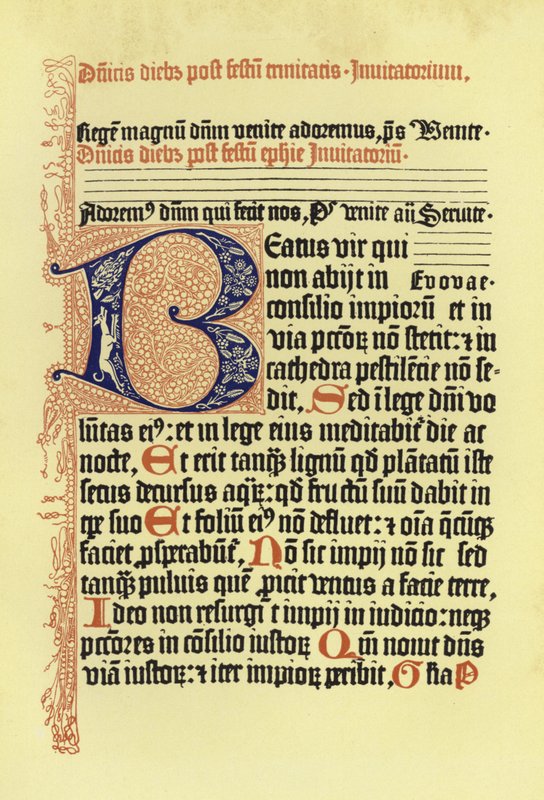 Dn̄icis diebꝫ post festū trinitatis · Inuitatorium,
Regē magnū dn̄m venite adoremus, p̄s Venite ·
Dn̄icis diebꝫ post festū ephie Inuitatoriū ·
Adoremꝰ dn̄m qui fecit nos, Ps venite aii Seruite ·
Beatus vir qui
non abijt in Evovae ·
consilio impiorū et in
via pccōꝝ nō stetit: ⁊ in
cathedra pestilēcie nō se⸗
dit, Sed ī lege dn̄i vo
lūtas eiꝰ: et in lege eius meditabit᷑ die ac
nocte, Et erit tanqꝫ lignū qd̄ plātatū iste
secus decursus aqꝝ: qd̄ fructū suū dabit in
tꝑe suo Et foliū eiꝰ nō defluet: ⁊ oīa qc̄ūqꝫ
faciet ꝓsꝑabūt᷑, Nō sic impij nō sic sed
tanqꝫ puluis quē ꝓicit ventus a facie terre,
Ideo non resurgūt impij in iudicio: neqꝫ
pccōres in cōsilio iustoꝝ Qm̄ nouit dn̄s
viā iustoꝝ: ⁊ iter impioꝝ ꝑibit, Glīa P